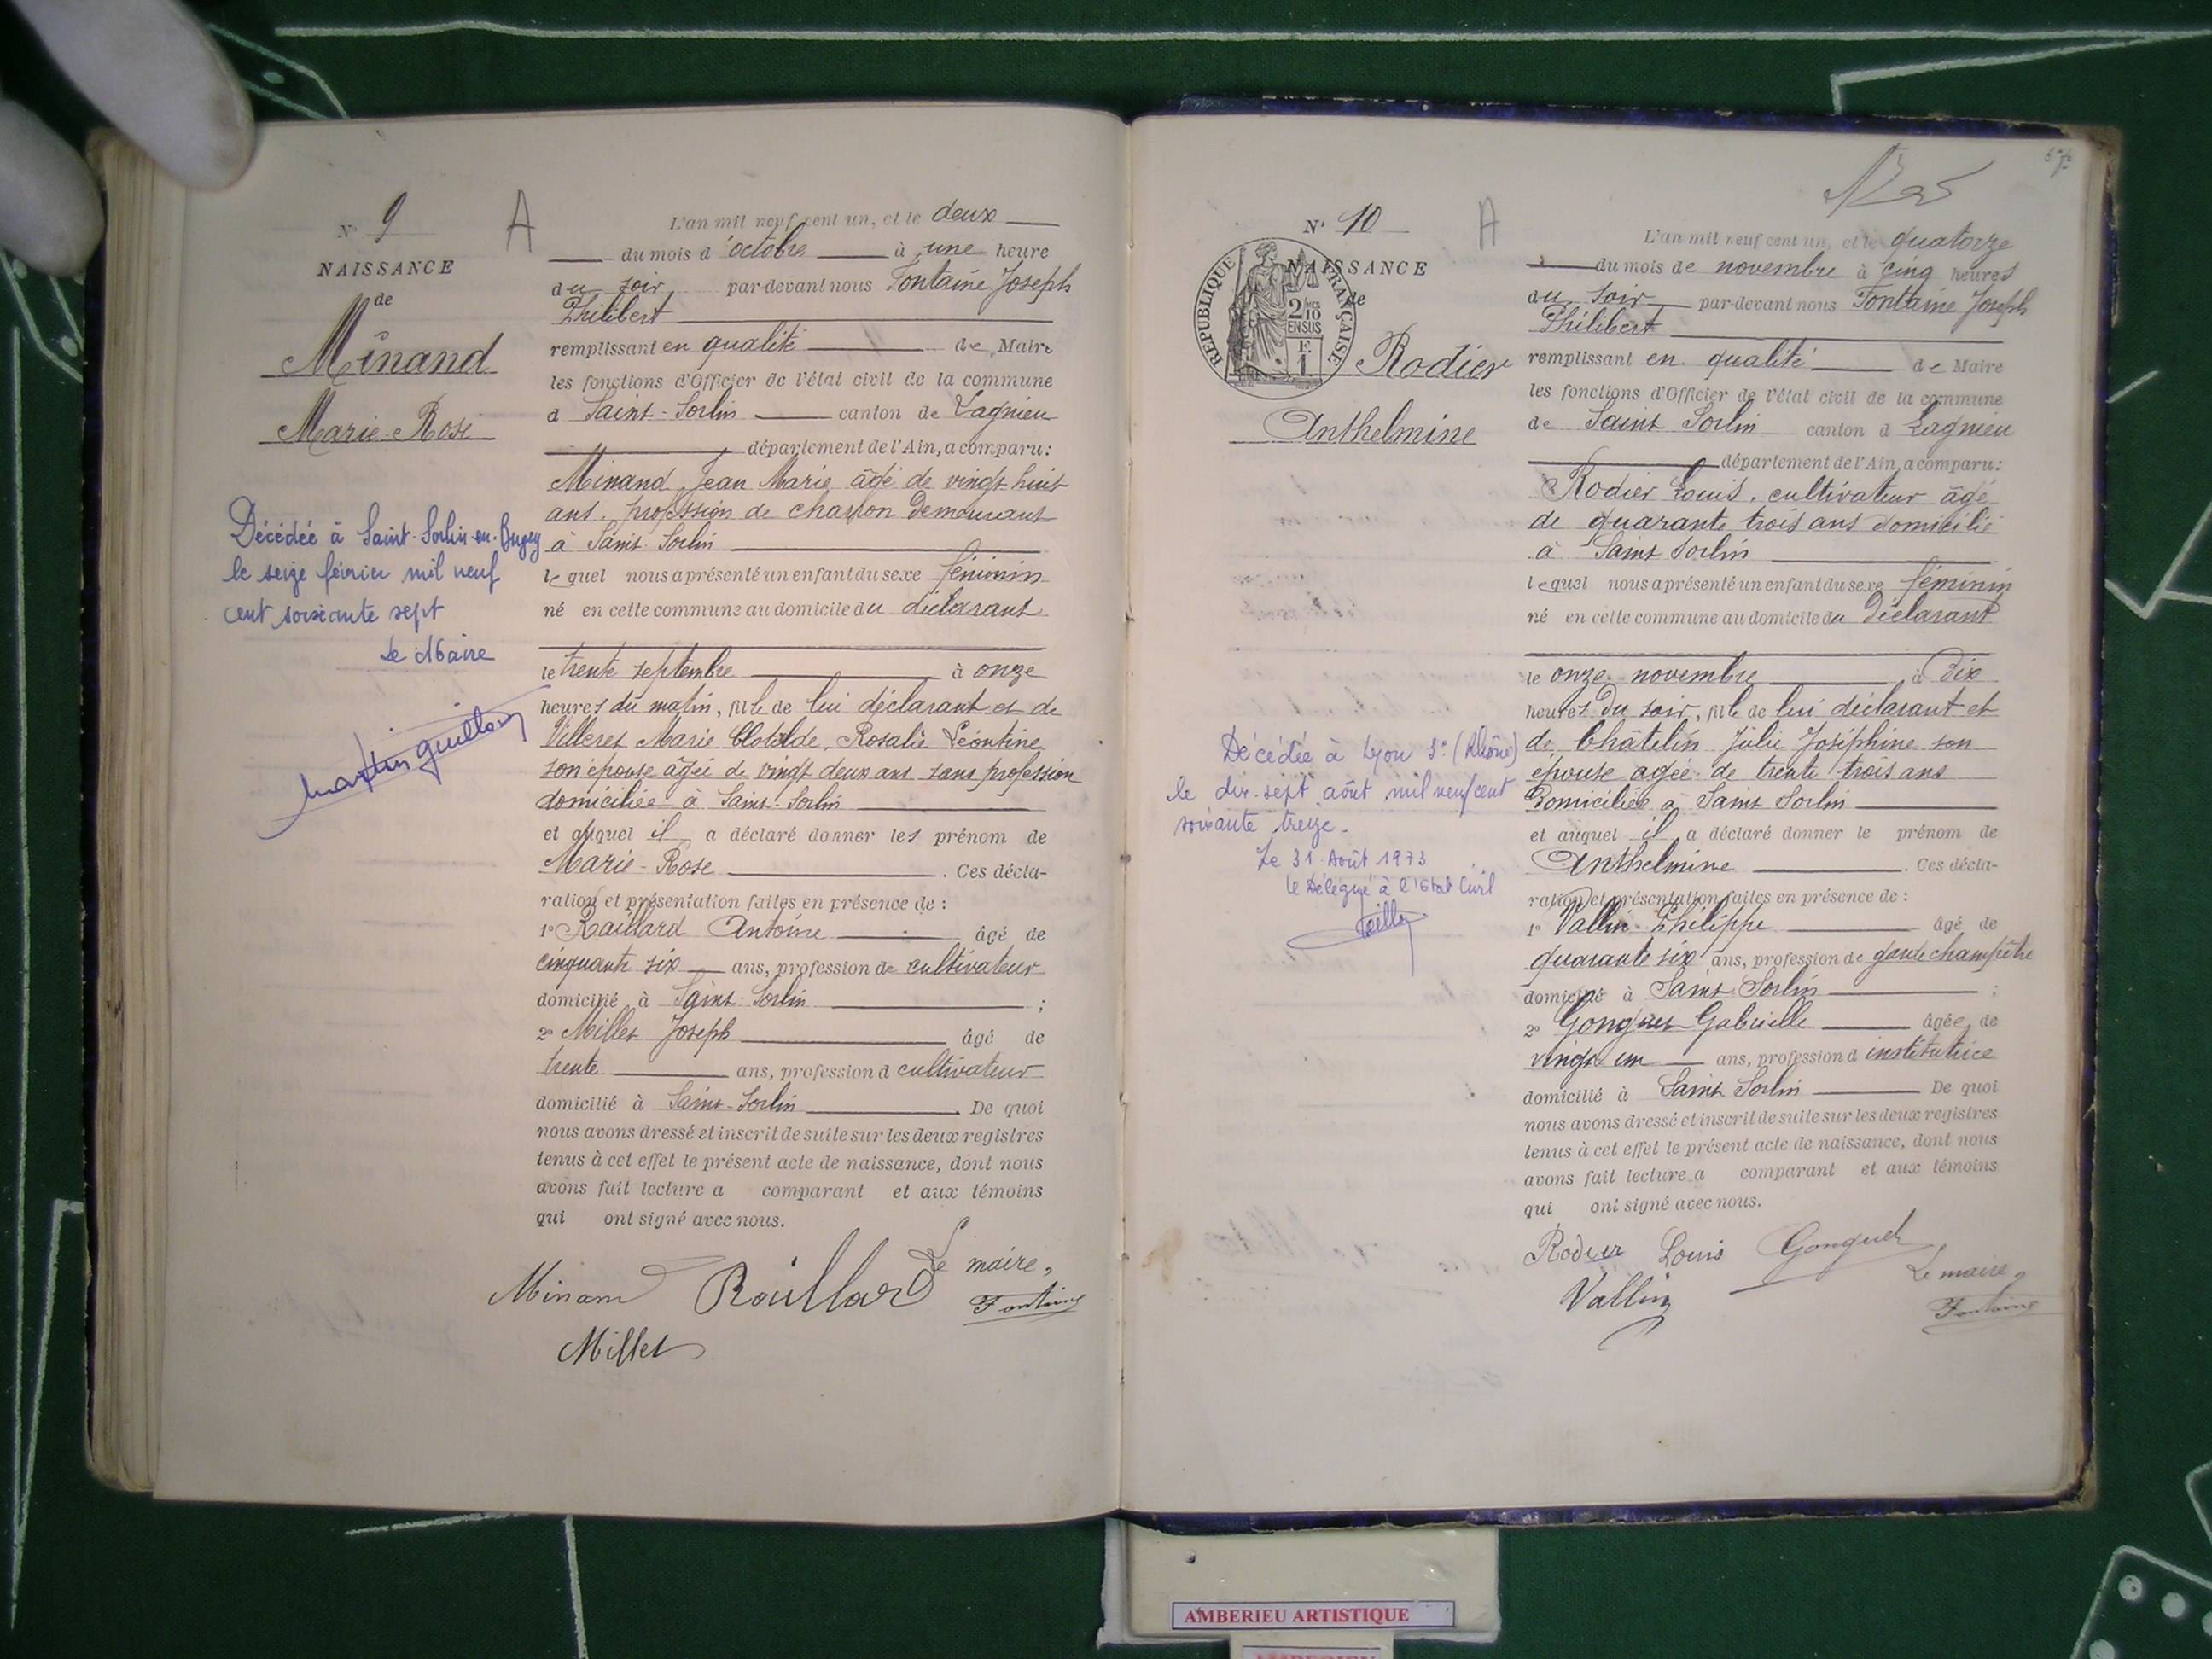 N° 9
A
NAISSANCE
de
Minand
Marie-Rose
Décédée à Saint-Sorlin-en-Bugey
le seize février mil neuf
cent soixante sept
Le Maire
martin guillon
L'an mil neuf cent un, et le deux
du mois d'octobre à une heure
du soir par-devant nous Fontaine Joseph
Philibert
remplissant en qualité de Maire
les fonctions d'Officier de l'état civil de la commune
d Saint-Sorlin canton de Lagnieu
département de l'Ain, a comparu:
Minand Jean Marie âgé de vingt huit
ans. profession de charron demeurant
à Saint-Sorlin
lequel nous a présenté un enfant du sexe féminin
né en cette commune au domicile du déclarant
le trente septembre à onze
heures du matin, fille de lui déclarant et de
Villeret Marie Clotilde, Rosalie Léontine
son épouse âgée de vingt deux ans sans profession
domiciliée à Saint-Sorlin
et auquel il a déclaré donner les prénom de
Marie-Rose. Ces décla-
ration et présentation faites en présence de :
1° Raillard Antoine âgé de
cinquante six ans, profession de cultivateur
domicilié à Saint-Sorlin ;
2° Millet Joseph âgé de
trente ans, profession d cultivateur
domicilié à Saint-Sorlin. De quoi
nous avons dressé et inscrit de suite sur les deux registres
tenus à cet effet le présent acte de naissance, dont nous
avons fait lecture a comparant et aux témoins
qui ont signé avec nous.
Minand Raillard Le maire,
Fontaine
Millet
N° 10
A
NAISSANCE
de
REPUBLIQUE FRANÇAISE
2/10
EN SUS
F.
1
Rodier
Anthelmine
Décédée à Lyon 3e (Rhône)
le dix-sept août mil neuf cent
soixante treize-
Le 31 Août 1973
Le Délégué à l'Etat Civil
L'an mil neuf cent un, et le quatorze
du mois de novembre à cinq heures
du soir par-devant nous Fontaine Joseph
Philibert
remplissant en qualité de Maire
les fonctions d'Officier de l'état civil de la commune
de Saint Sorlin canton d Lagnieu
département de l'Ain, a comparu:
Rodier Louis, cultivateur âgé
de quarante trois ans domicilié
à Saint Sorlin
lequel nous a présenté un enfant du sexe féminin
né en cette commune au domicile du Déclarant
le onze novembre à Dix
heures du soir, fille de lui déclarant et
de Châtelin Julie Joséphine son
épouse agée de trente trois ans
Domiciliée à Saint Sorlin
et auquel il a déclaré donner le prénom de
Anthelmine. Ces décla-
ration et présentation faites en présence de :
1° Vallin Philippe âgé de
quarante six ans, profession de garde champêtre
domicilié à Saint Sorlin ;
2° Gonguet Gabrielle âgée de
vingt un ans, profession d institutrice
domicilié à Saint Sorlin De quoi
nous avons dressé et inscrit de suite sur les deux registres
tenus à cet effet le présent acte de naissance, dont nous
avons fait lecture a comparant et aux témoins
qui ont signé avec nous.
Rodier Louis Gonguet
Vallin Le maire,
Fontaine
AMBERIEU ARTISTIQUE